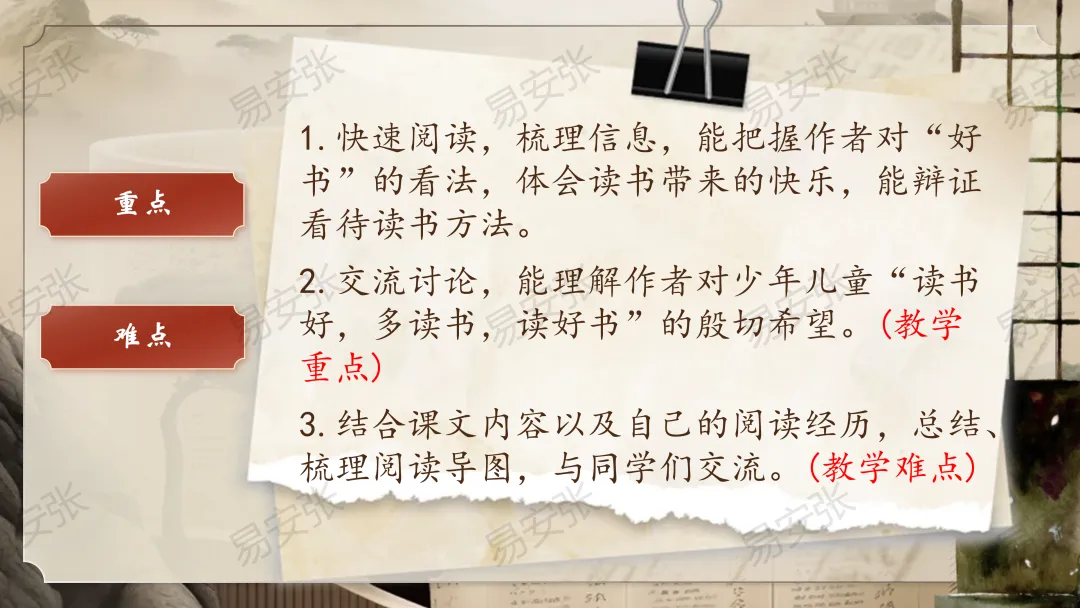 重点
难点
1.快速阅读，梳理信息，能把握作者对“好
书”的看法，体会读书带来的快乐，能辩证
看待读书方法。
2.交流讨论，能理解作者对少年儿童“读书
好，多读书，读好书”的殷切希望。(教学
重点)
3.结合课文内容以及自己的阅读经历，总结、
梳理阅读导图，与同学们交流。(教学难点)
易安张